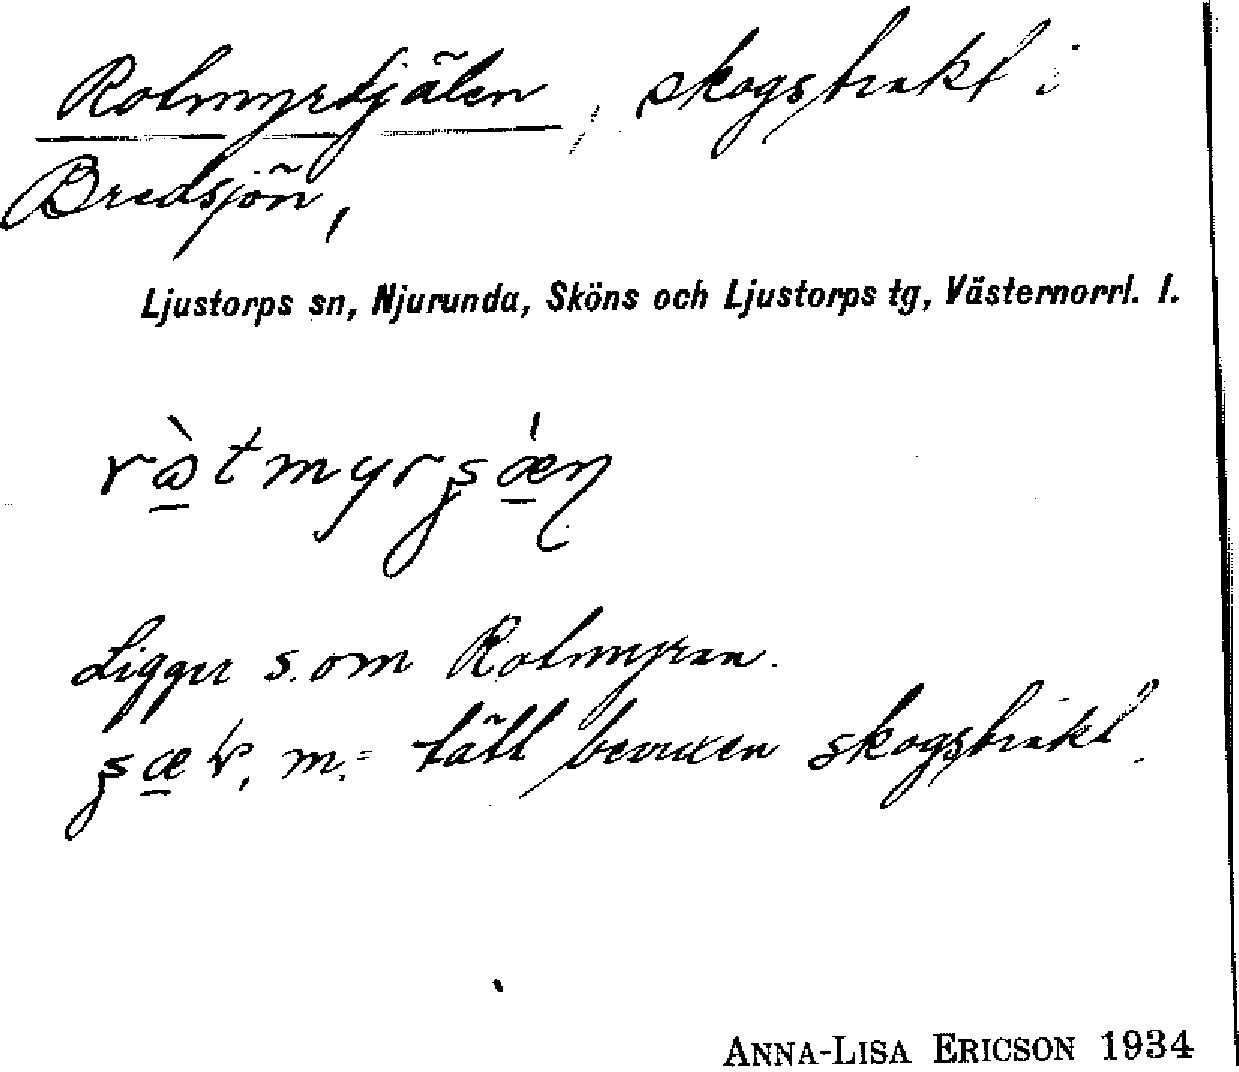 Rotmyrtjälen, skogstrakt i
Bredsjön,
Ljustorps sn, Njurunda, Sköns och Ljustorps tg, Västernorrl. l.
Ligger s. om Rotmyran.
m. = tätt bevuxen skogstrakt.
ANNA-LISA ERICSON 1934